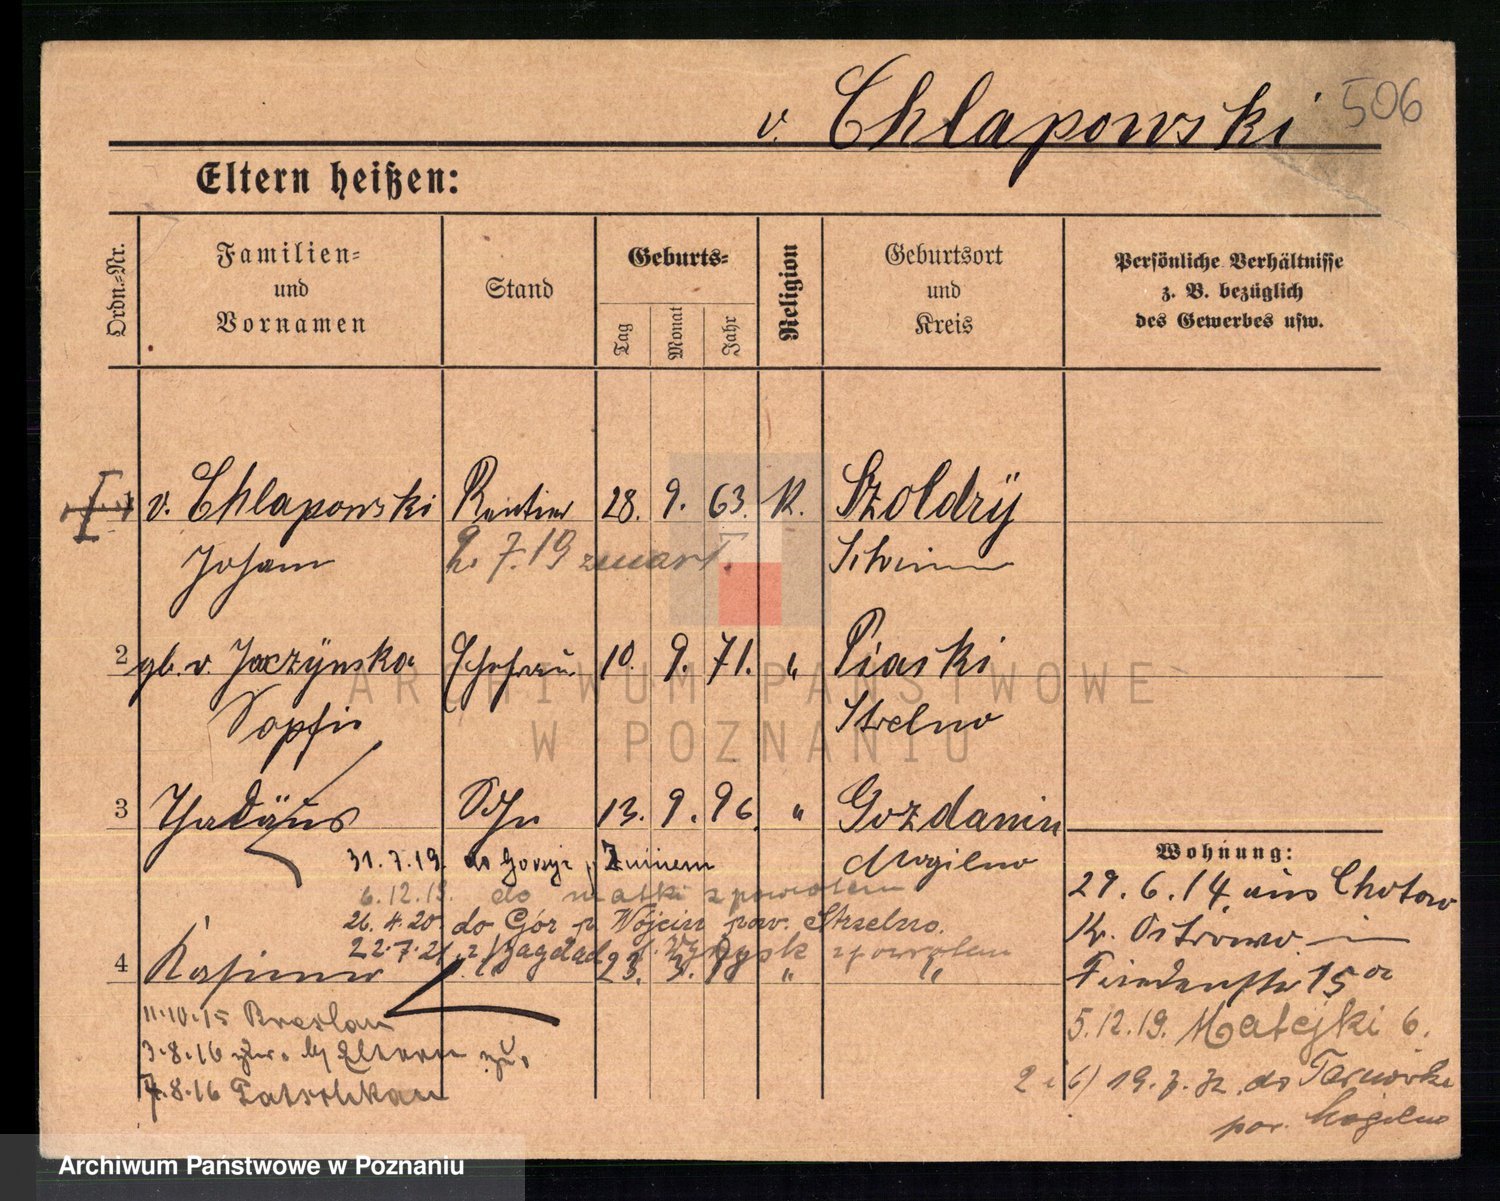 v. Chlapowski 506
Eltern heißen:
Ordn.-Nr.
Familien-
und
Vornamen
Stand
Geburts-
Tag
Monat
Jahr
Religion
Geburtsort
und
Kreis
Persönliche Verhältnisse
z. B. bezüglich
des Gewerbes usw.
1 v. Chlapowski Rentier 28. 9. 63. K. Szoldry
Johann 2. 7. 19 zmarł. Schrimm
2 gb. v. Jaczynska Ehefrau 10. 9. 71. " Piaski
Sophie Strelno
3 Thadäus Sohn 13. 9. 96. " Gozdanin
Mogilno
31.7.19. do Żninem
6.12.19. do matki z powrotem
26.4.20. do Gór p. Wójcin pow. Strzelno.
22.7.21. z Bagdad p. Wyrzysk z powrotem
4 Kasimir " 23. 3. " "
11.10.15 Breslau
3.8.16 Eltern zu.
7.8.16 Patschkau
Wohnung:
29.6.14 aus Chotow
Kr. Ostrowo
Friedenstr 15 a
5.12.19. Matejki 6.
2 i 6) 19.7.32. do Tarnówka
pow. Mogilno
ARCHIWUM PAŃSTWOWE
W POZNANIU
Archiwum Państwowe w Poznaniu